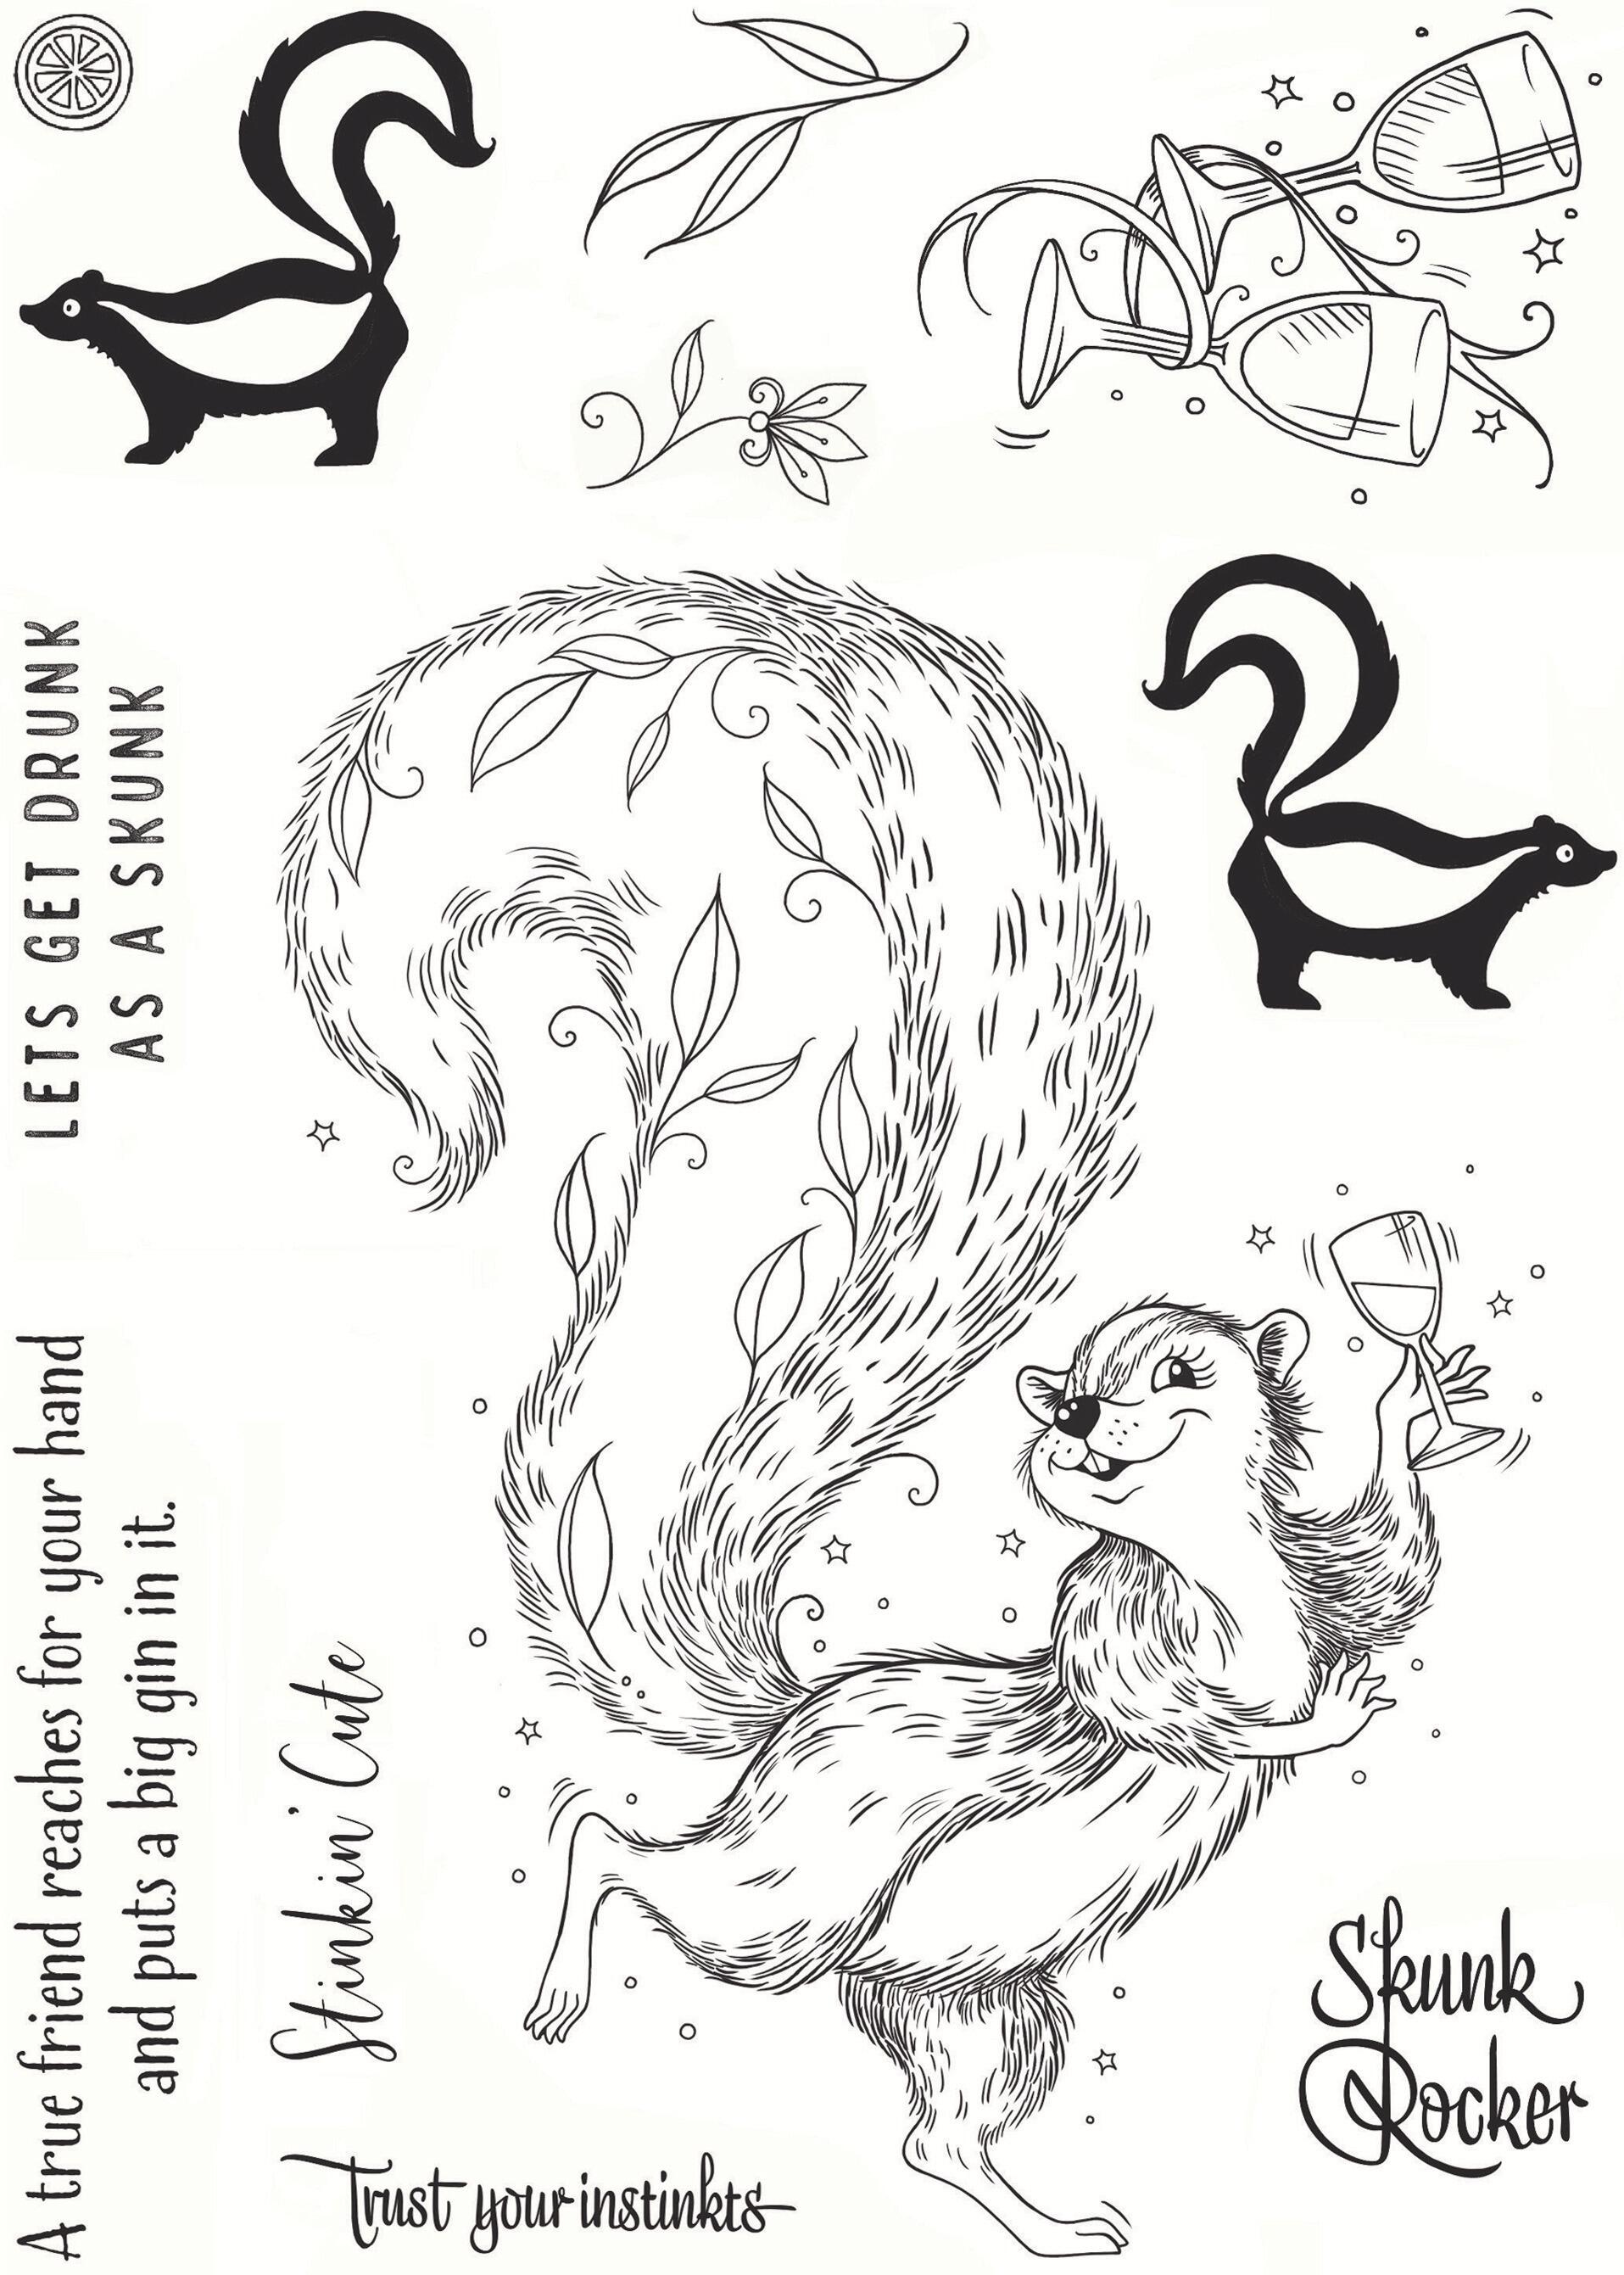 LETS GET DRUNK
AS A SKUNK
A true friend reaches for your hand
and puts a big gin in it.
Stinkin' Cute
Trust your instinkts
Skunk
Rocker